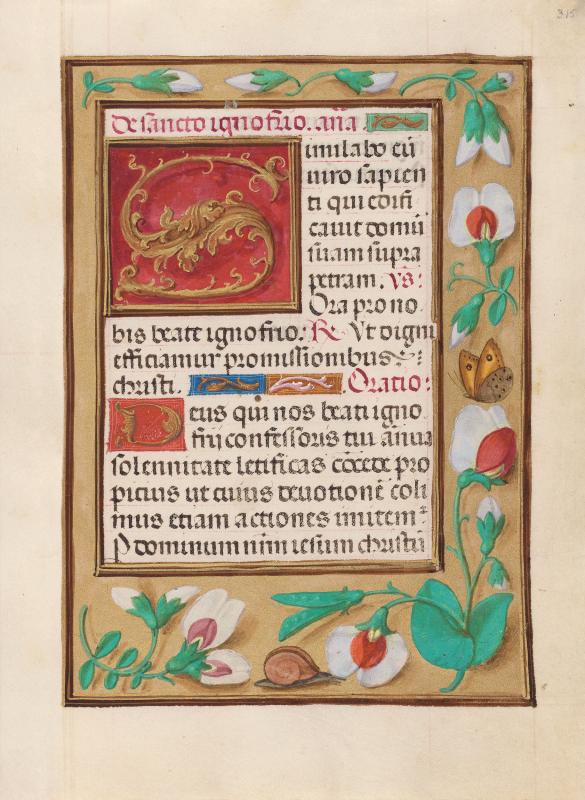 315
De sancto ignofrio. aña
Similabo eū
viro sapien
ti qui edifi
cavit domū
suam supra
petram. vs:
Ora pro no
bis beate ignofrio: R Vt digni
efficiamur promissionibus
christi. Oratio:
Deus qui nos beati igno
frij confessoris tui ānua
solennitate letificas cōcede pro
picius ut cuius devotionē coli
mus etiam actiones imitem᷑
P dominum nr̄m iesum christū